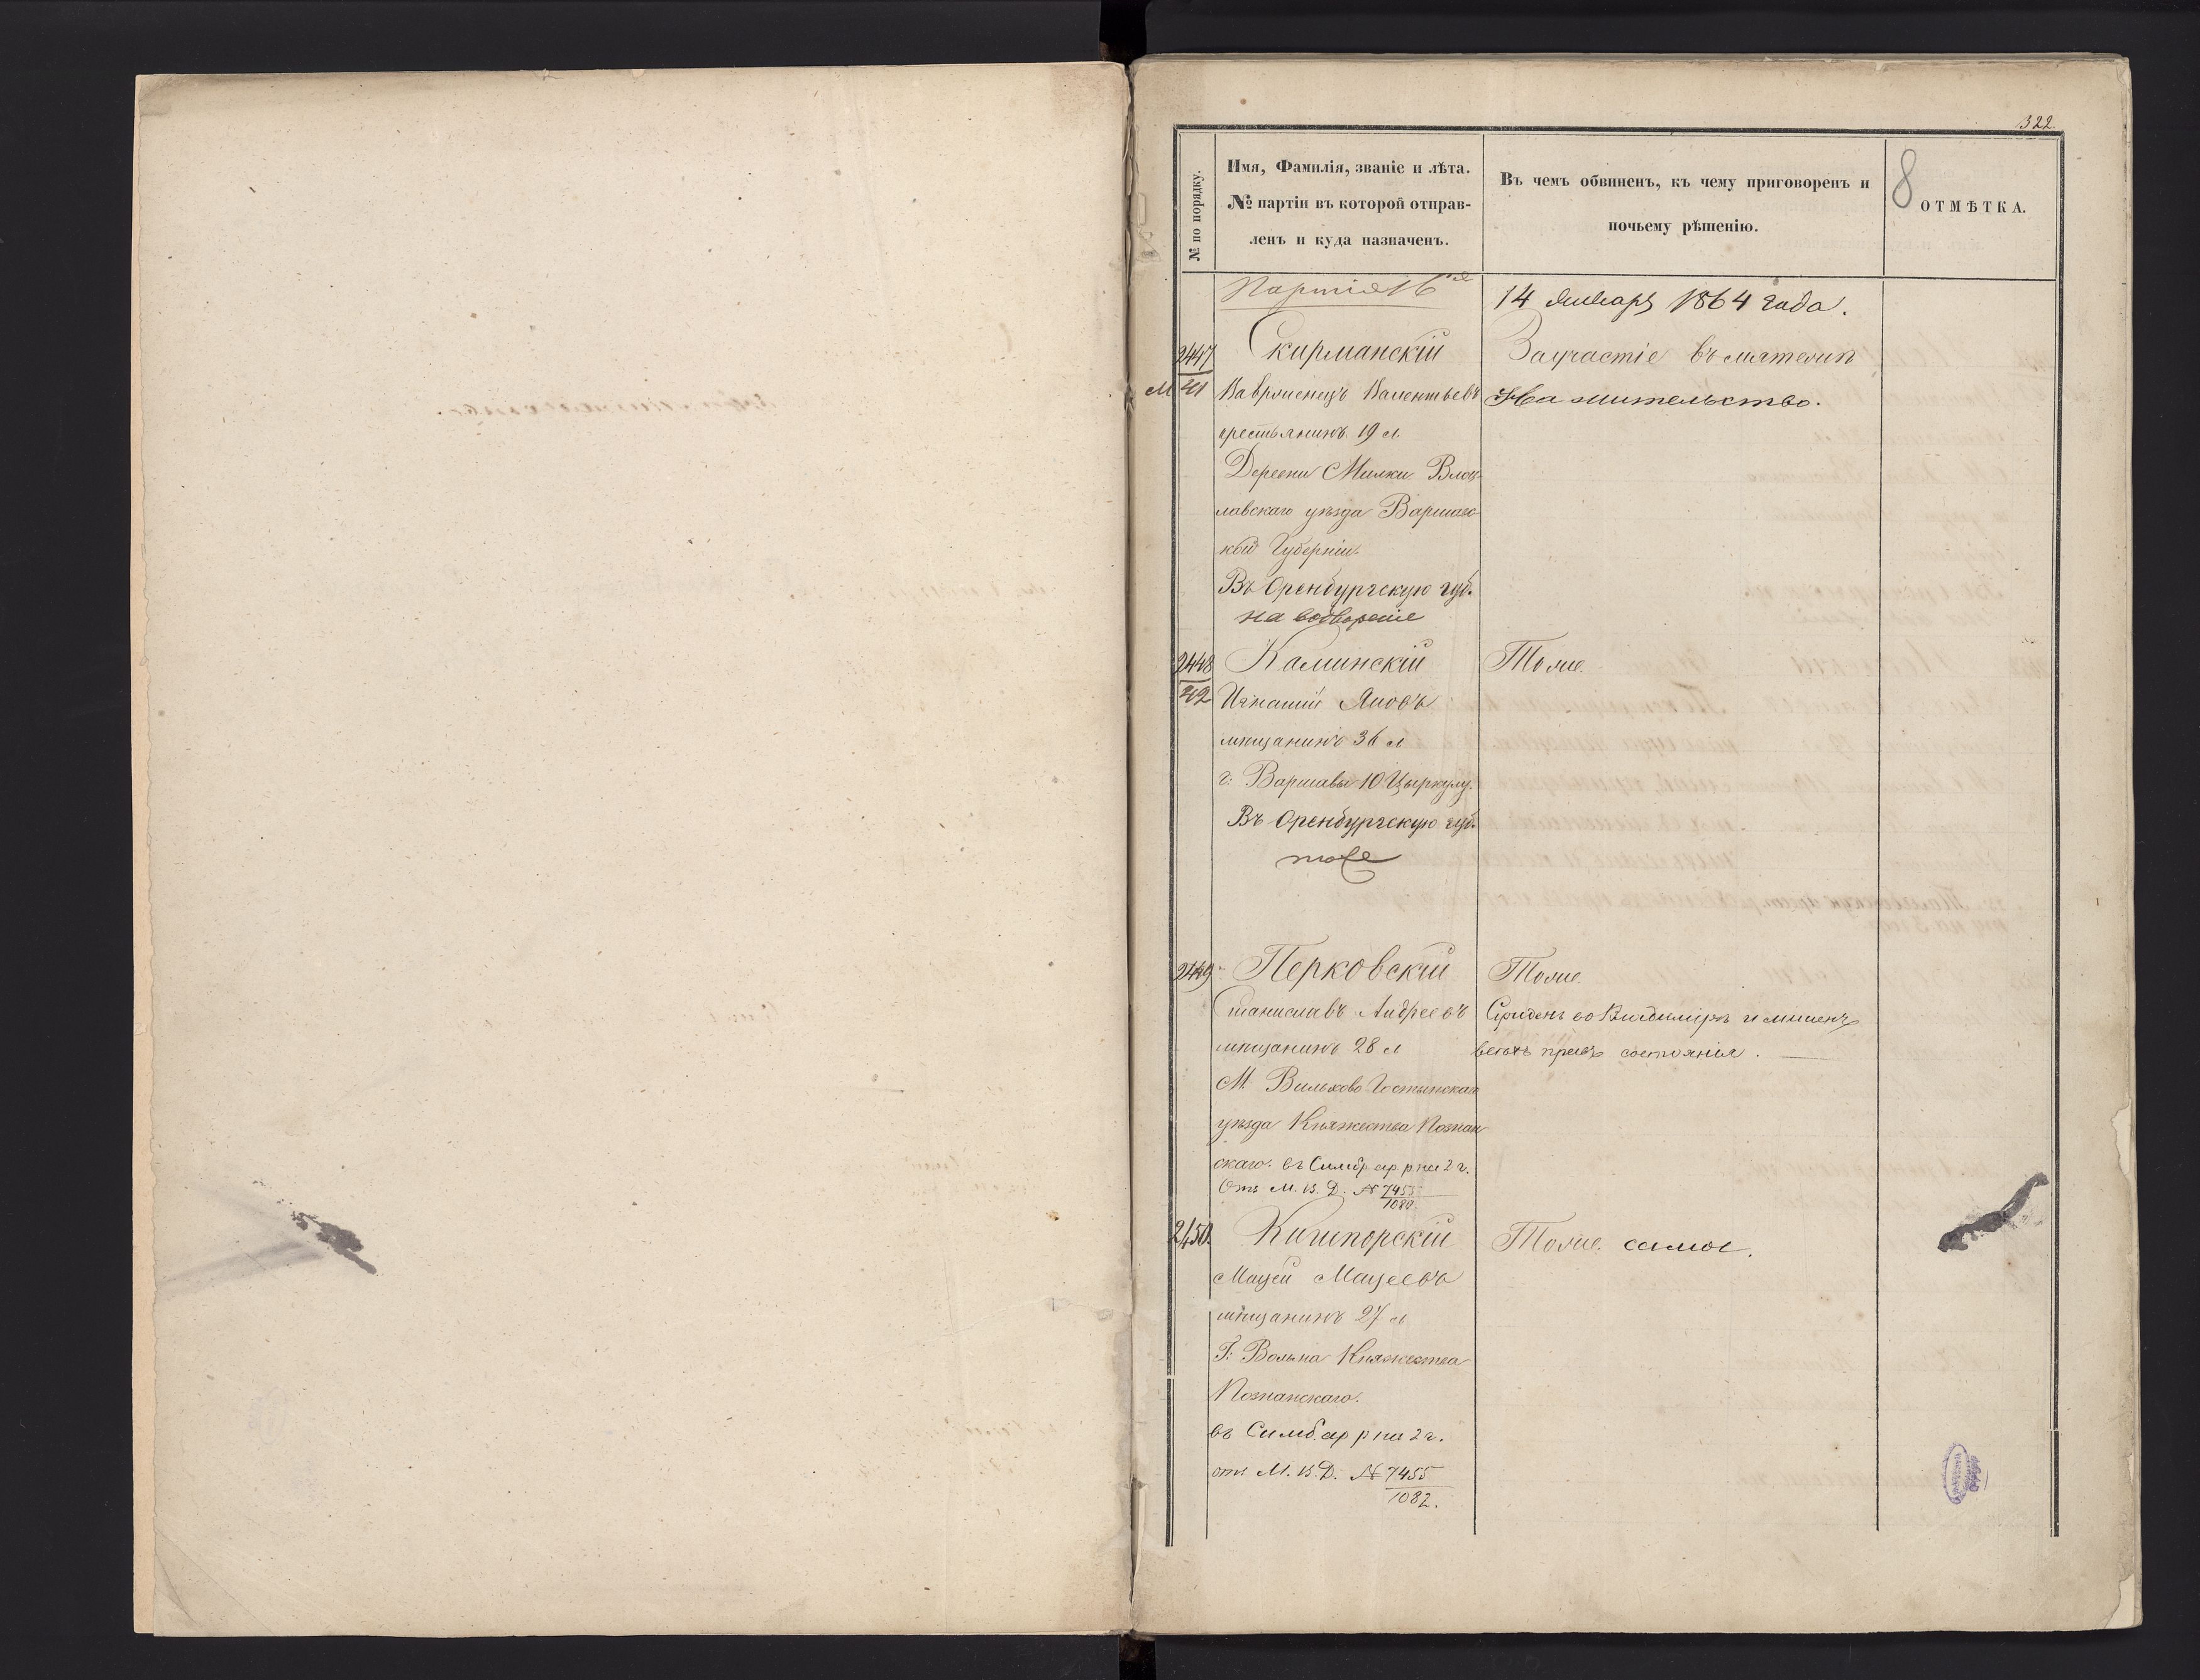 322
№ по порядку.
Имя, Фамилія, званіе и лѣта.
№ партіи въ которой отправ-
ленъ и куда назначенъ.
Въ чемъ обвиненъ, къ чему приговоренъ и
почьему рѣшенію.
8
ОТМѢТКА.
Партія 16
14 Января 1864 года.
2447
41
Скирманскій
Вавржинецъ Валентьевъ
крестьянинъ 19 л.
Деревни Милки Влоц-
лавскаго уѣзда Варшавс-
кой Губерніи.
Въ Оренбургскую губ.
на водвореніе
За участіе въ мятежѣ
На жительство.
2448
42
Каминскій
Игнатій Яновъ
мѣщанинъ 36 л
г: Варшавы 10 Циркулу.
Въ Оренбургскую губ.
тоже
Тоже.
2449
Перковскій
Станиславъ Андреевъ
мѣщанинъ 28 л
М. Вильхово Гостынскаго
уѣзда Княжества Познан
скаго. въ Симб ар р на 2 г.
Отъ М. В. Д. № 7455
1080
Тоже.
Сужденъ во Владимірѣ и лишенъ
всѣхъ правъ состоянія.
2450.
Кишпорскій
Мацей Мацеевъ
мѣщанинъ 27 л
Г: Вольна Княжества
Познанскаго.
въ Симб. ар р на 2 г.
отъ М. В. Д. № 7455
1082.
Тоже самое.